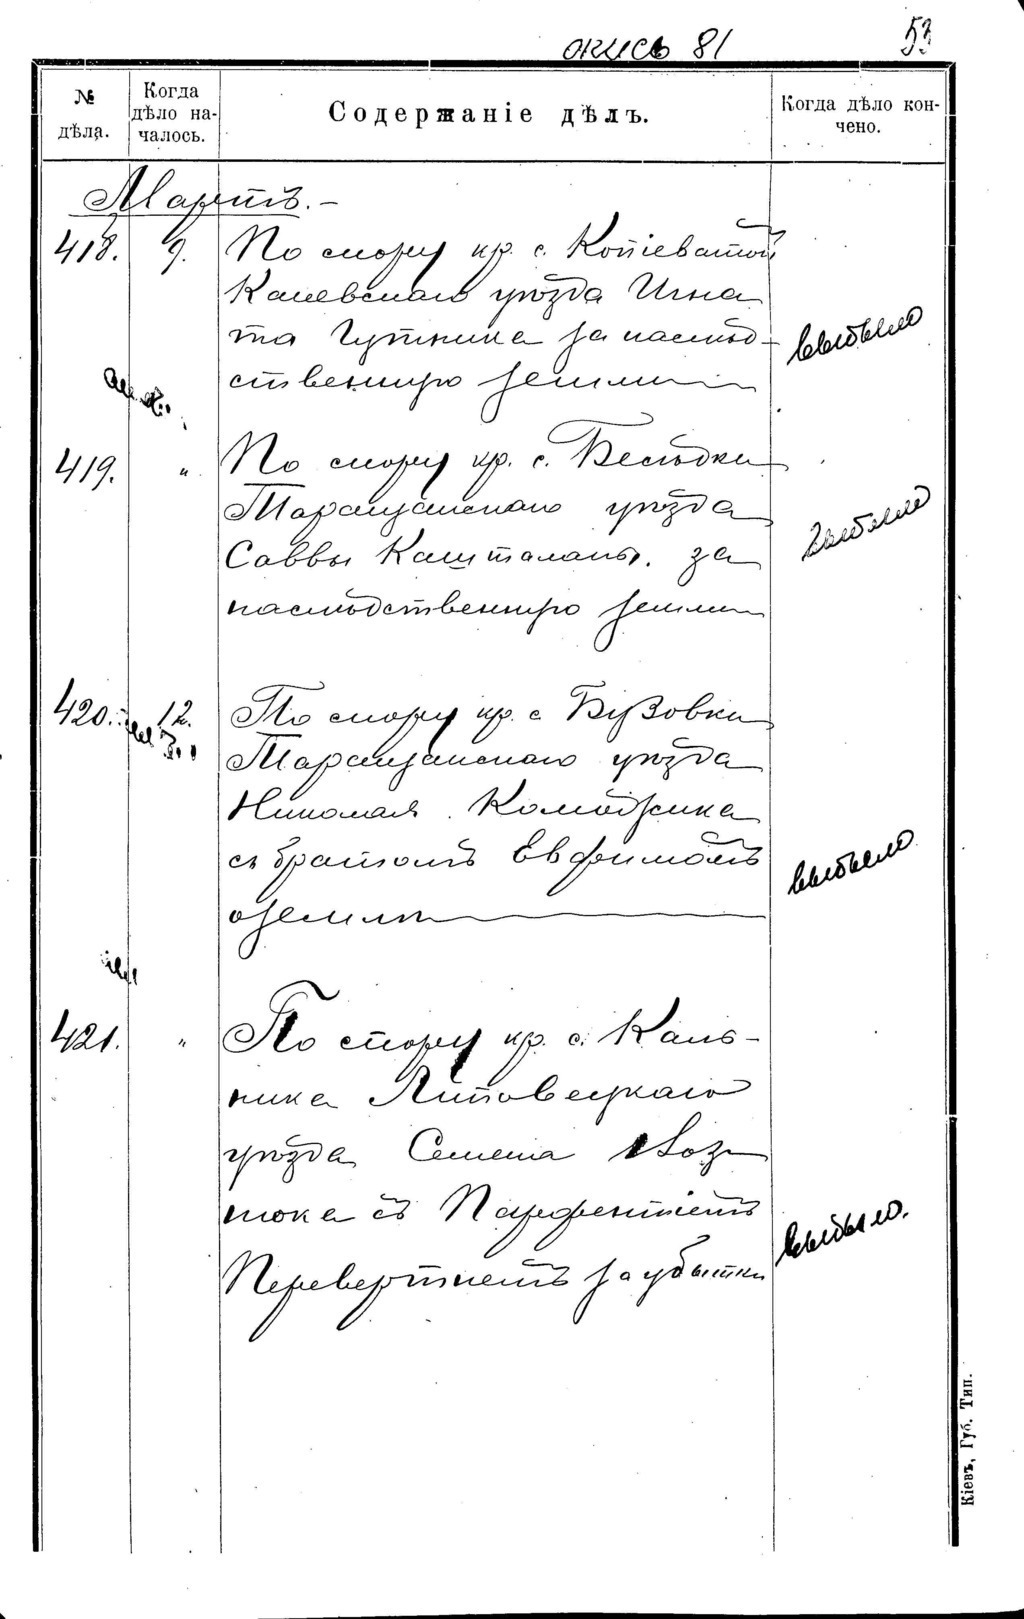 опись 81
53
№ дѣла.
Когда дѣло началось.
Содержаніе дѣлъ.
Когда дѣло кончено.
Мартъ.-
418. 9. По спору кр. с. Копіеватой
Каневскаго уѣзда Игна
та Гутника за наслѣд-
ственную землю
выбыло
419. " По спору кр. с. Бесѣдки
Таращанскаго уѣзда
Саввы Кашталаны. за
наслѣдственную землю
выбыло
420. 12. По спору кр. с Бузовки
Таращанскаго уѣзда
Николая
съ братомъ Евфимомъ
о землѣ
выбыло
421. " По спору кр. с. Каль-
ника Липовецкаго
уѣзда Семена
съ Парфентіемъ
Перевертнемъ за убытки
выбыло.
Кіевъ, Губ. Тип.